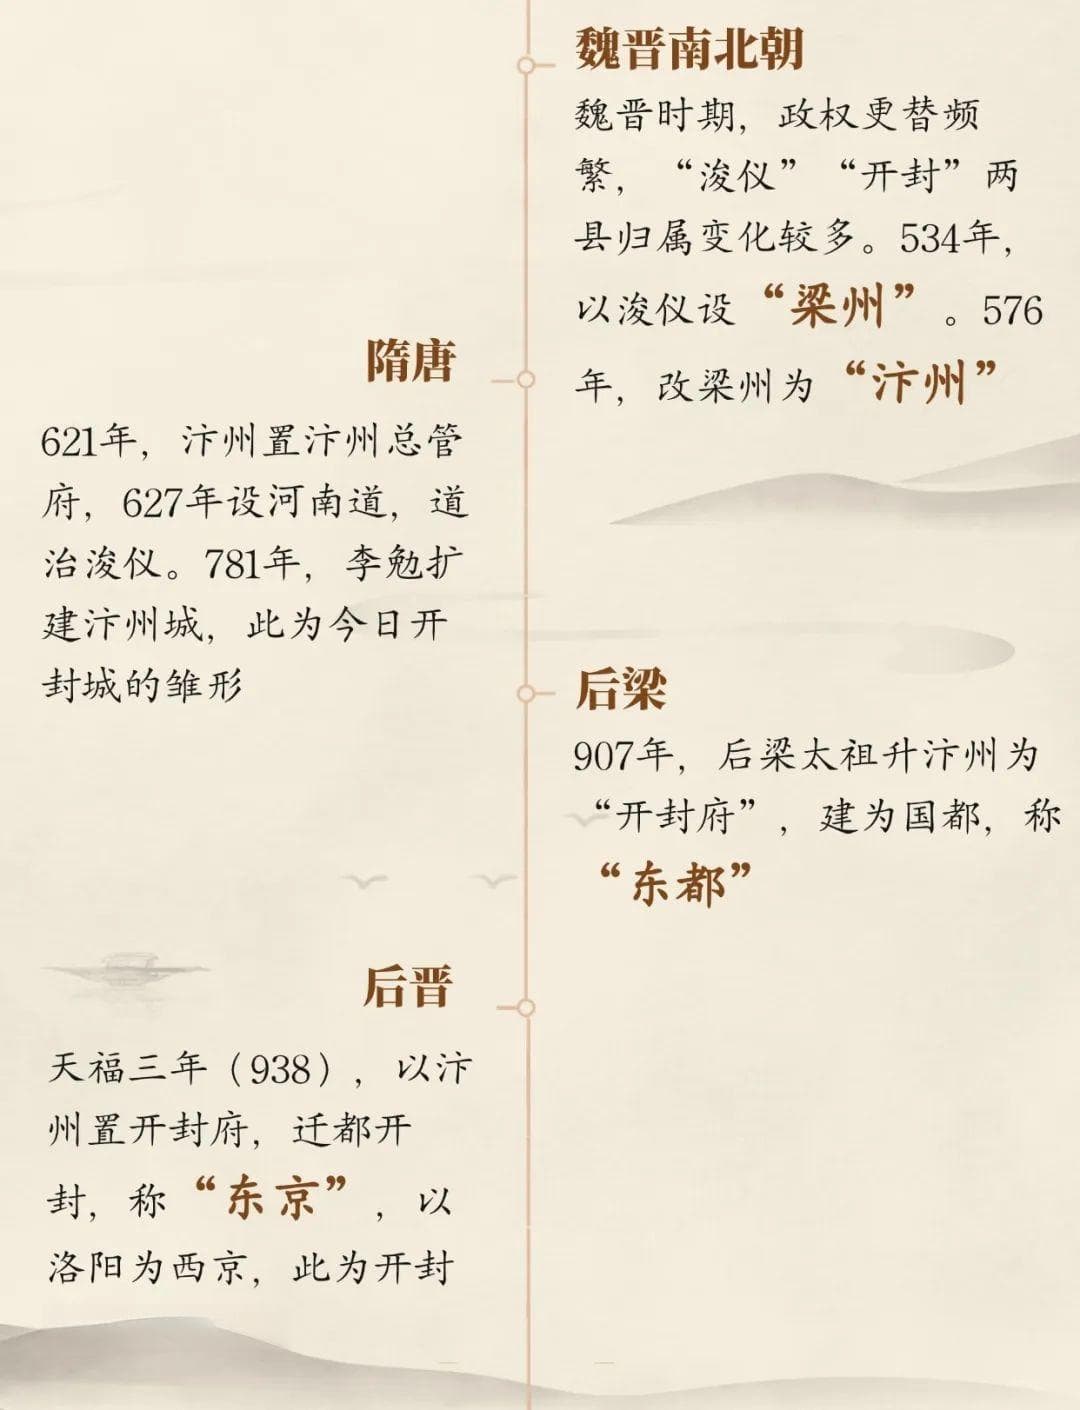 魏晋南北朝
魏晋时期，政权更替频
繁，“浚仪”“开封”两
县归属变化较多。534年，
以浚仪设“梁州”。576
年，改梁州为“汴州”
隋唐
621年，汴州置汴州总管
府，627年设河南道，道
治浚仪。781年，李勉扩
建汴州城，此为今日开
封城的雏形
后梁
907年，后梁太祖升汴州为
“开封府”，建为国都，称
“东都”
后晋
天福三年（938），以汴
州置开封府，迁都开
封，称“东京”，以
洛阳为西京，此为开封